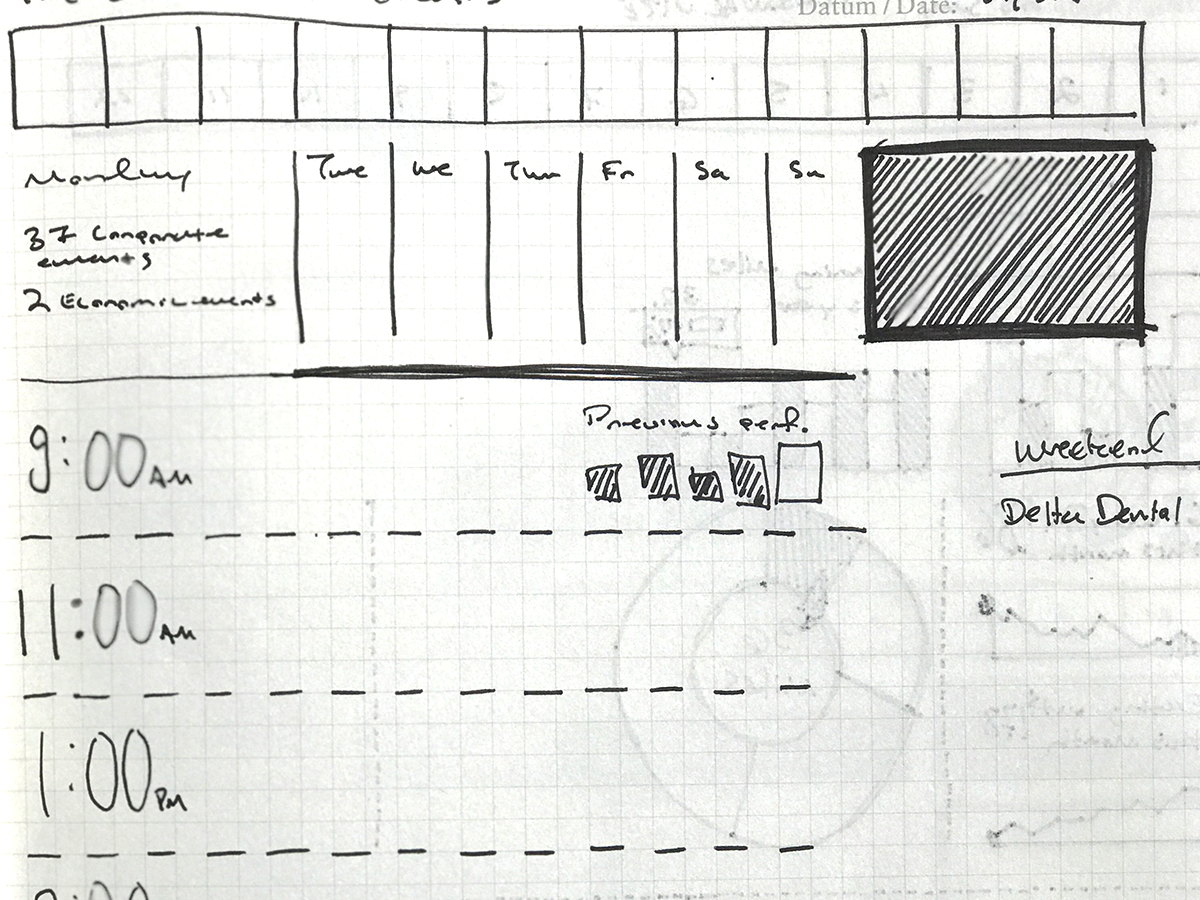 Datum / Date:
Monday Tue We Thu Fr Sa Su
37 Corporate
events
2 Economic events
Previous perf.
9:00 AM
Weekend
Delta Dental
11:00 AM
1:00 PM